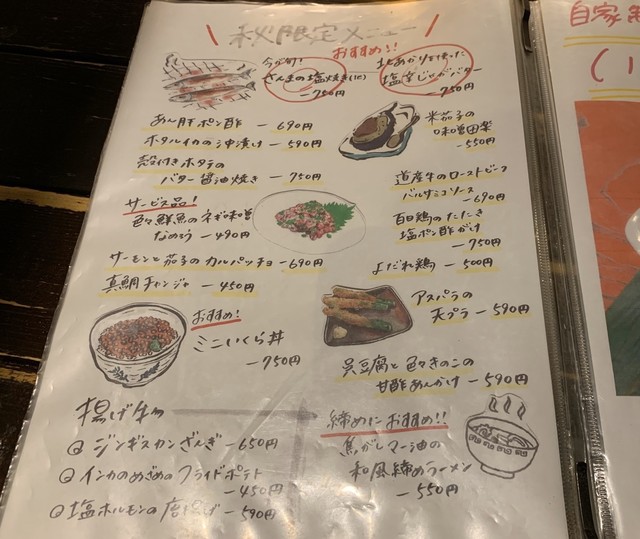 秋限定メニュー
おすすめ!!
今が旬!
さんまの塩焼き(1匹)
-750円
北あかりを使った
塩辛じゃがバター
-750円
あん肝ポン酢 - 690円
ホタルイカの沖漬け - 590円
殻付きホタテの
バター醤油焼き - 750円
米茄子の
味噌田楽
-550円
道産牛のローストビーフ
バルサミコソース
-690円
サービス品!
色々鮮魚のネギ味噌
なめろう -490円
鶏のたたき
塩ポン酢がけ
-750円
サーモンと茄子のカルパッチョ -690円
よだれ鶏 - 500円
真鯛チャンジャ - 450円
おすすめ!
ミニいくら丼
-750円
アスパラの
天プラ - 590円
豆腐と色々きのこの
甘酢あんかけ - 590円
揚げ物
ジンギスカンざんぎ -650円
インカのめざめのフライドポテト
-450円
塩ホルモンの唐揚げ -590円
締めにおすすめ!!
焦がしマー油の
和風締めラーメン
-550円
自家
(1